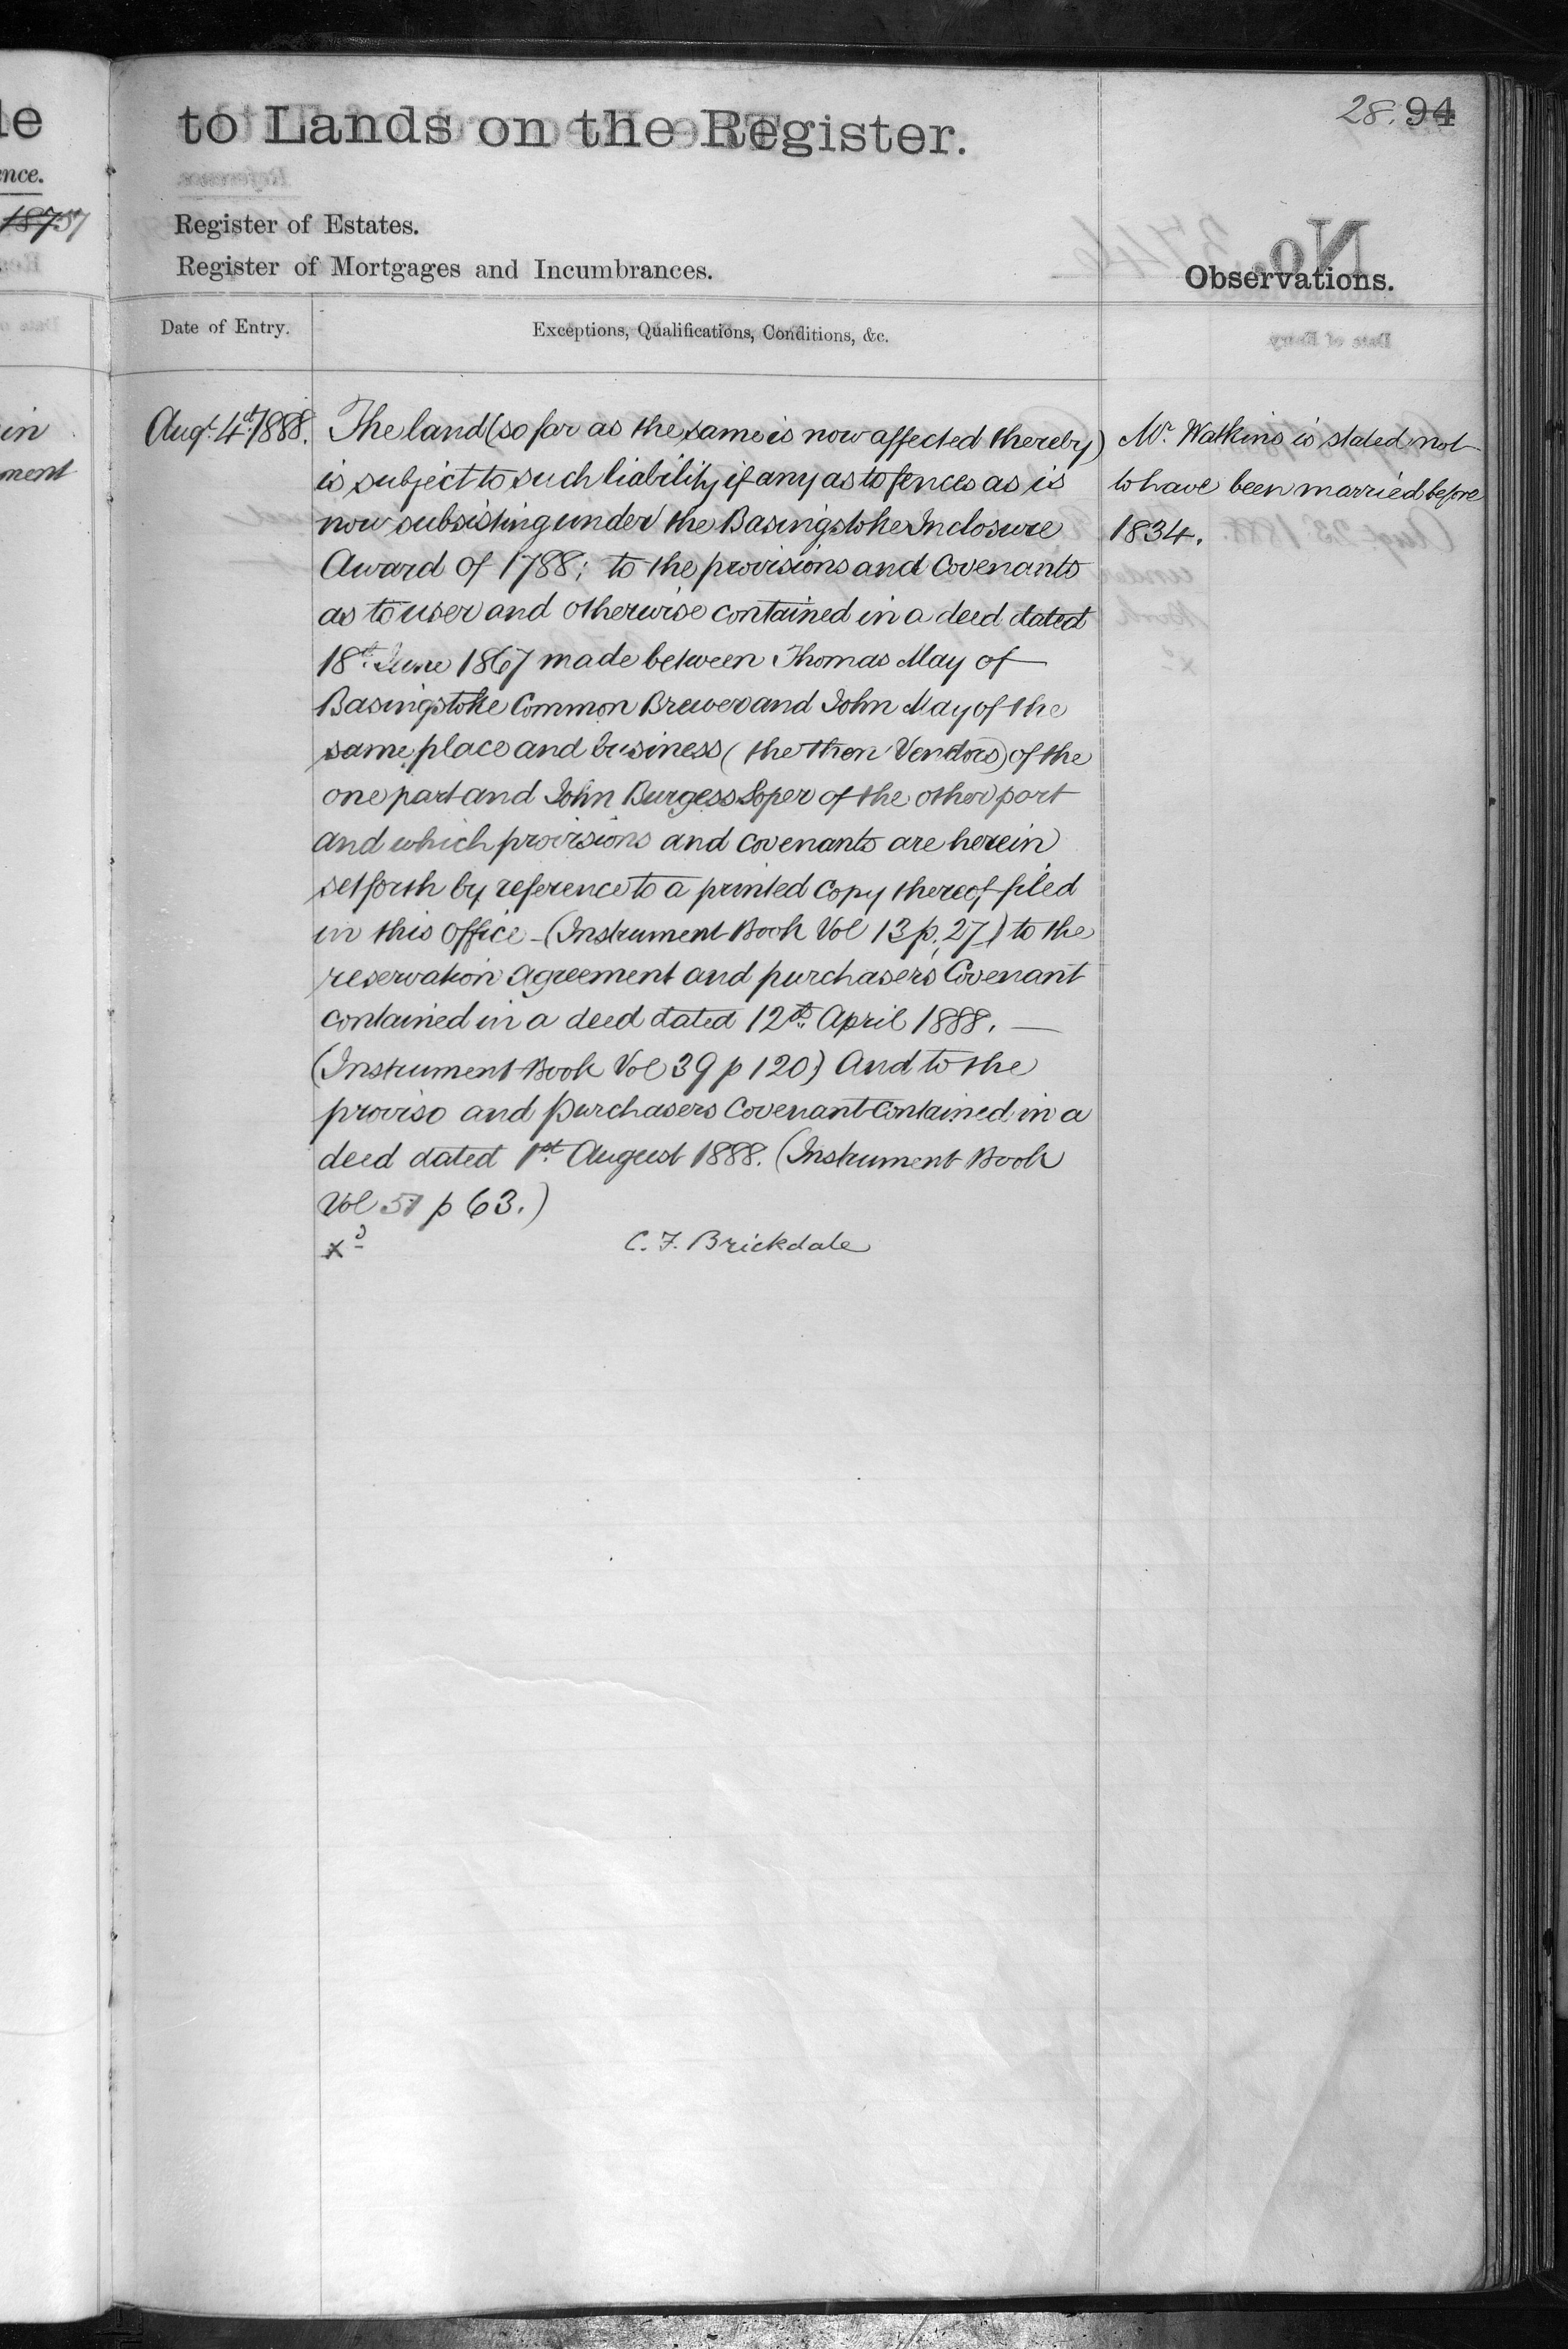 28. 94
to Lands on the Register.
Register of Estates.
Register of Mortgages and Incumbrances.
Observations.
Date of Entry.
Exceptions, Qualifications, Conditions, &c.
Augt. 4th. 1888.
The land (so far as the same is now affected thereby)
is subject to such liability if any as to fences as is
now subsisting under the Basingstoke Inclosure
Award of 1788; to the provisions and Covenants
as to user and otherwise contained in a deed dated
18th. June 1867 made between Thomas May of
Basingstoke Common Brewer and John May of the
same place and business (the then Vendors) of the
one part and John Burgess Soper of the other part
and which provisions and covenants are herein
set forth by reference to a printed Copy thereof filed
in this Office - (Instrument Book Vol 13 p. 27) to the
reservation agreement and purchasers Covenant
contained in a deed dated 12th. April 1888. —
(Instrument Book Vol 39 p 120) And to the
proviso and purchasers Covenant Contained in a
deed dated 1st. August 1888. (Instrument Book
Vol 51 p 63.)
C. F. Brickdale
Mr. Watkins is stated not
to have been married before
1834.
le
nce.
in
ment